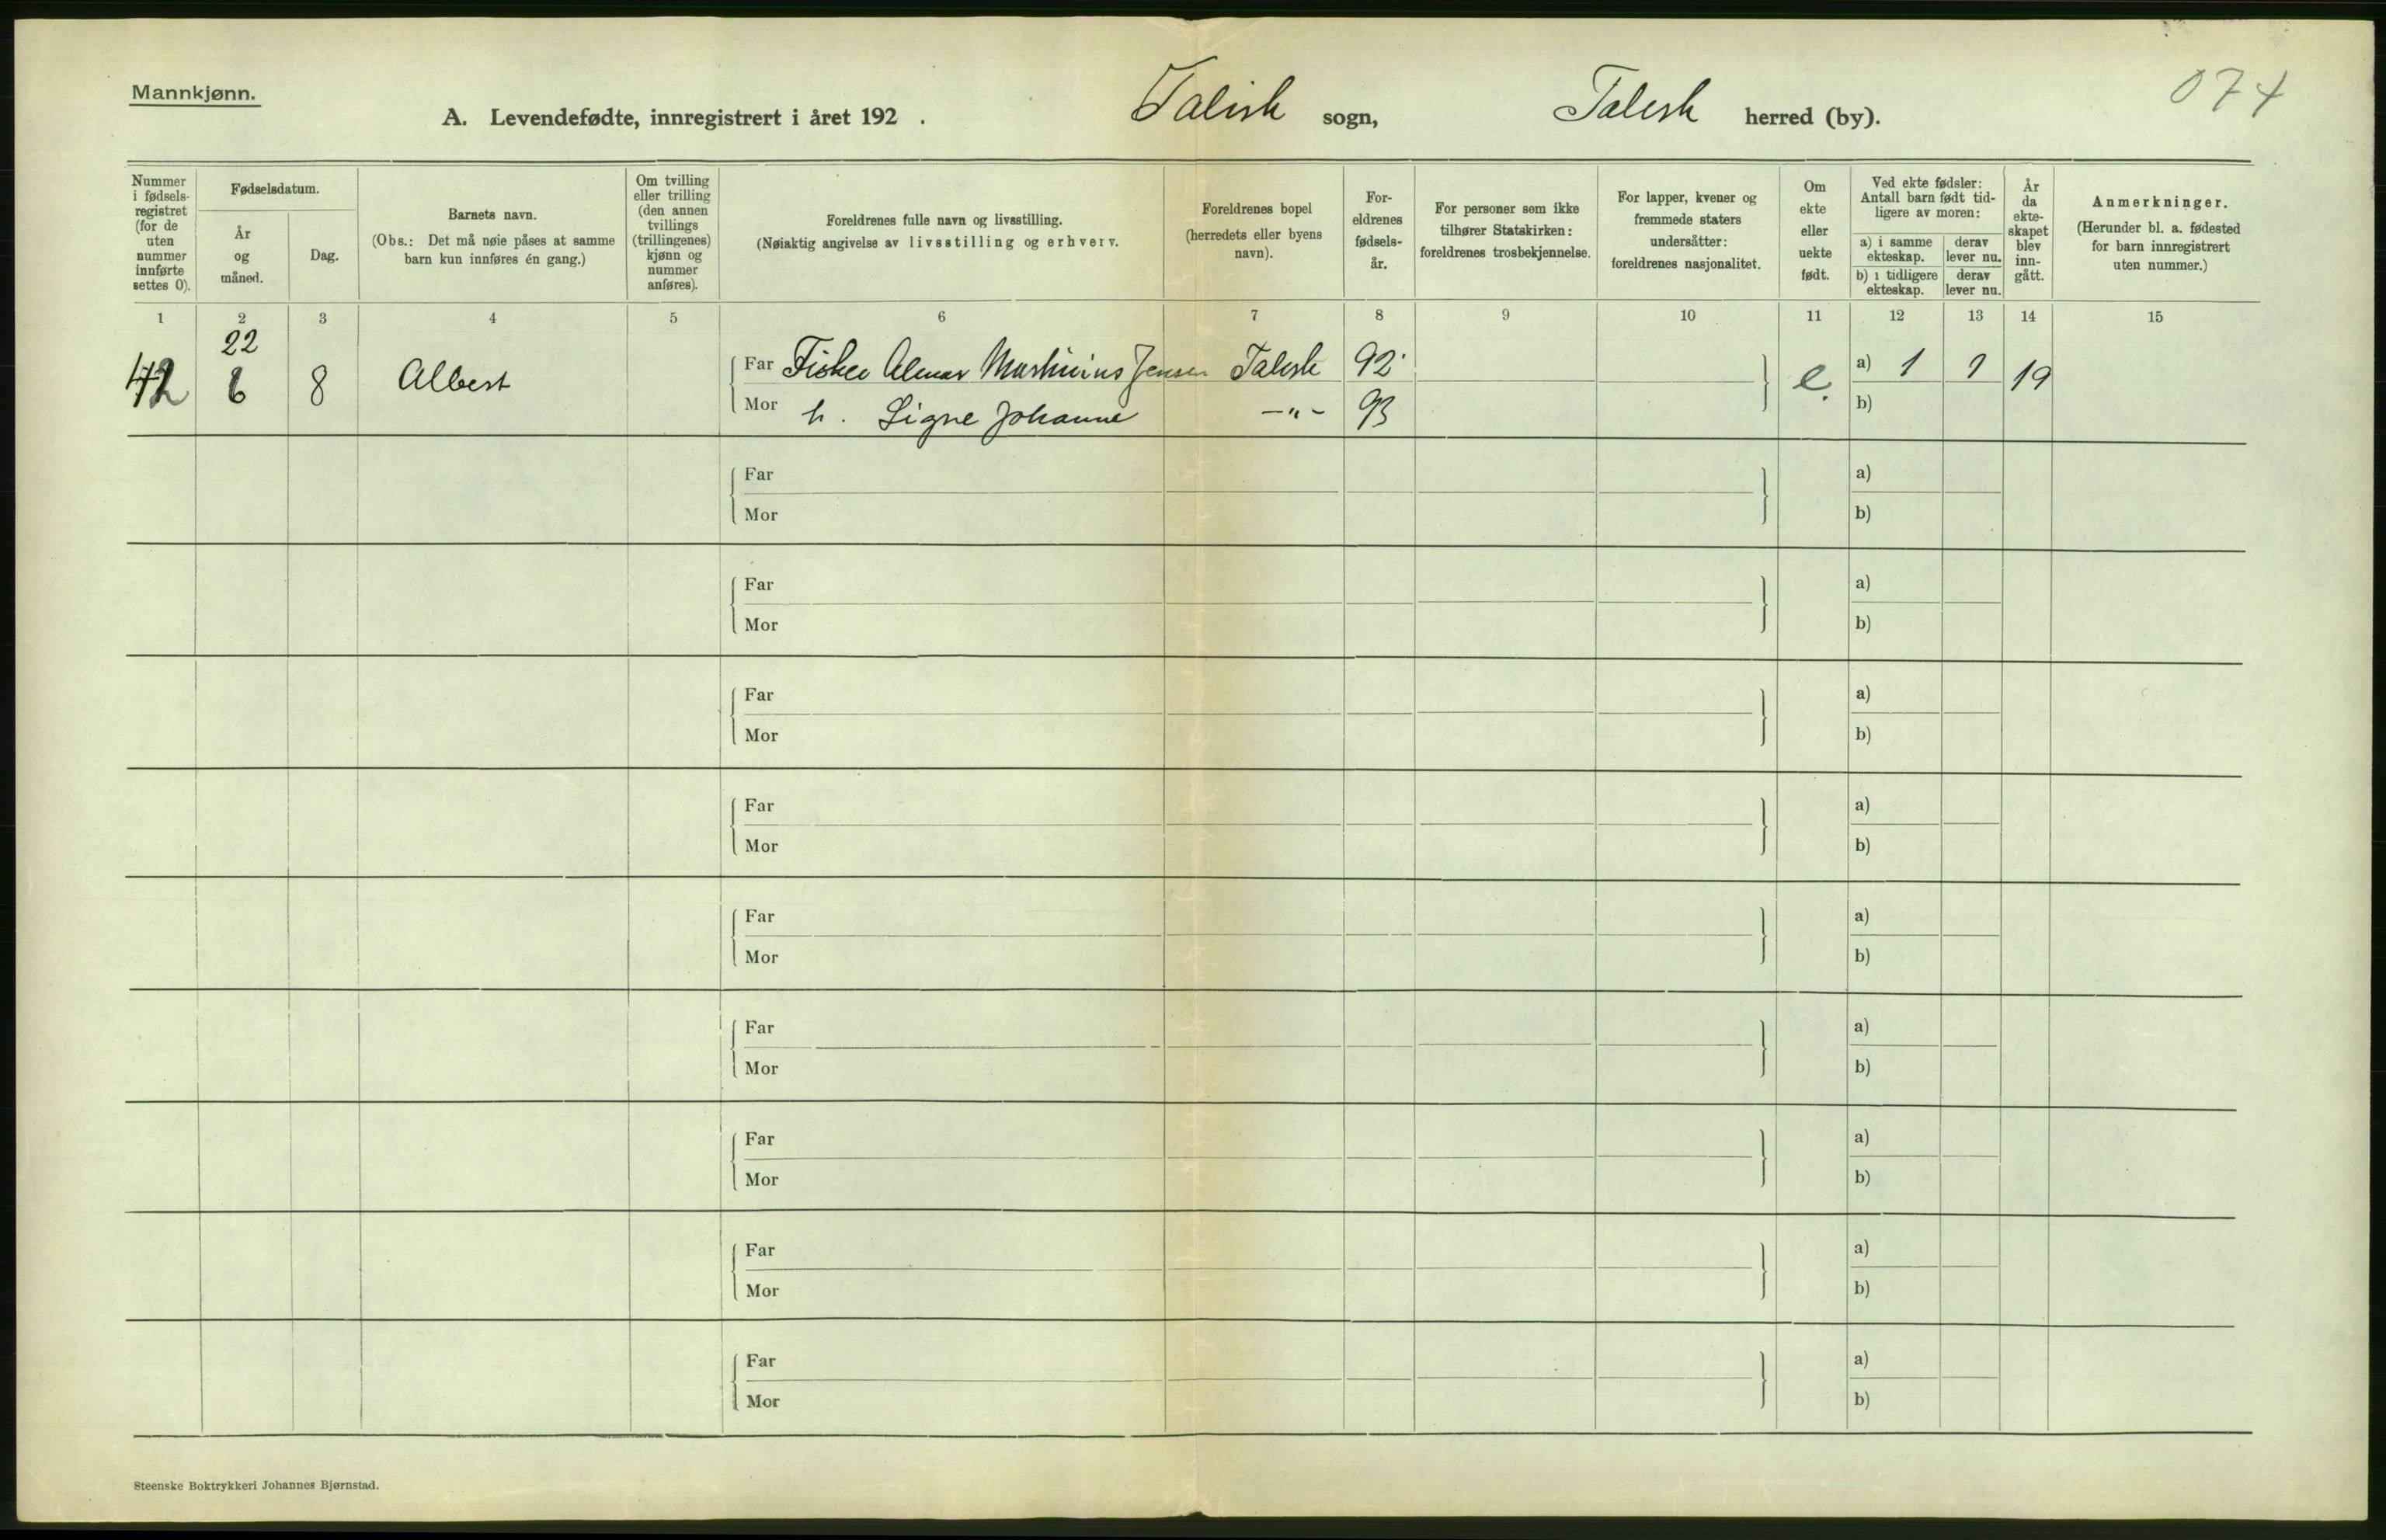 Mannkjønn.
A. Levendefødte, innregistrert i året 192 . Talvik sogn, Talvik herred (by).
074
Nummer i fødselsregistret (for de uten nummer innførte settes 0).
Fødselsdatum.
År og måned.
Dag.
Barnets navn.
(Obs.: Det må nøie påses at samme barn kun innføres én gang.)
Om tvilling eller trilling (den annen tvillings (trillingenes) kjønn og nummer anføres).
Foreldrenes fulle navn og livsstilling.
(Nøiaktig angivelse av livsstilling og erhverv.
Foreldrenes bopel (herredets eller byens navn).
Foreldrenes fødselsår.
For personer som ikke tilhører Statskirken: foreldrenes trosbekjennelse.
For lapper, kvener og fremmede staters undersåtter: foreldrenes nasjonalitet.
Om ekte eller uekte født.
Ved ekte fødsler: Antall barn født tidligere av moren:
a) i samme ekteskap.
derav lever nu.
b) i tidligere ekteskap.
derav lever nu.
År da ekteskapet blev inngått.
Anmerkninger.
(Herunder bl. a. fødested for barn innregistrert uten nummer.)
1 2 3 4 5 6 7 8 9 10 11 12 13 14 15
22
42 6 8 Albert
Far Fisker Almar Jensen Talvik 92
Mor h. Signe Johanne -"- 93
e.
a) 1 1 19
b)
Far a)
Mor b)
Far a)
Mor b)
Far a)
Mor b)
Far a)
Mor b)
Far a)
Mor b)
Far a)
Mor b)
Far a)
Mor b)
Far a)
Mor b)
Far a)
Mor b)
Steenske Boktrykkeri Johannes Bjørnstad.